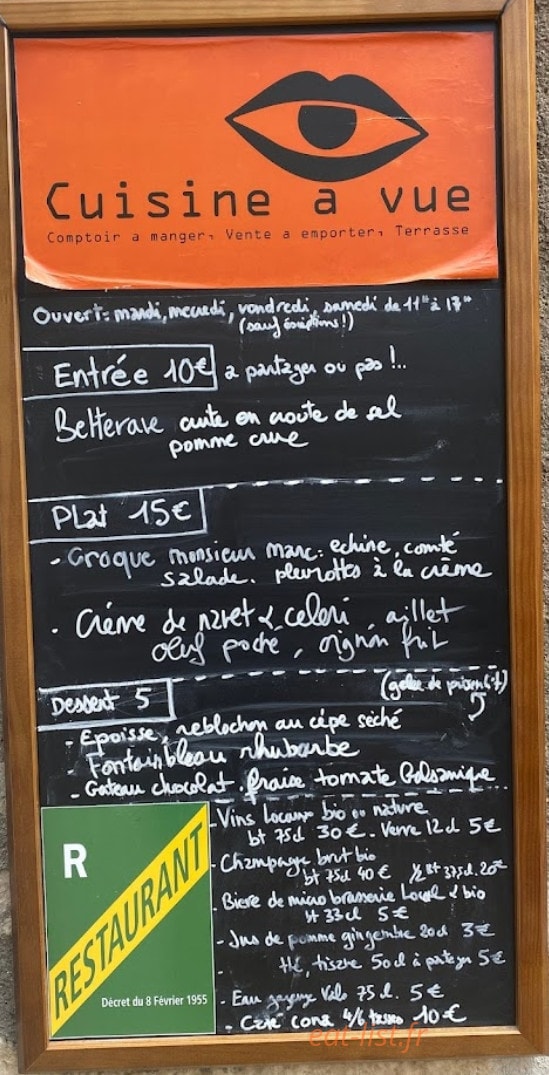 Cuisine a vue
Comptoir a manger, Vente a emporter, Terrasse
Ouvert: mardi, mercredi, vendredi, samedi de 11h à 17h
(sauf exceptions!)
Entrée 10€ a partager ou pas !..
Betterave cuite en croute de sel
pomme crue
Plat 15€
- Croque monsieur marc: echine, comté
salade. pleurottes à la crème
- Crème de navet & celeri, aillet
oeuf poché, oignon frit
Dessert 5 (gelée de
- Epoisse, reblochon au cépe séché
- Fontainbleau rhubarbe
- Gateau chocolat. fraise tomate Balsamique
- Vins locaux bio ou nature
bt 75cl 30€. Verre 12cl 5€
- Champagne brut bio
bt 75cl 40€ ½ Bt 37,5cl. 20€
- Biere de micro brasserie local & bio
bt 33cl 5€
- Jus de pomme gingembre 20cl 3€
- thé, tisane 50cl à partager 5€
- Eau gazeuse Velo 75cl. 5€
- Café cona 4/6 tasses 10€
R
RESTAURANT
Décret du 8 Février 1955
eat-list.fr